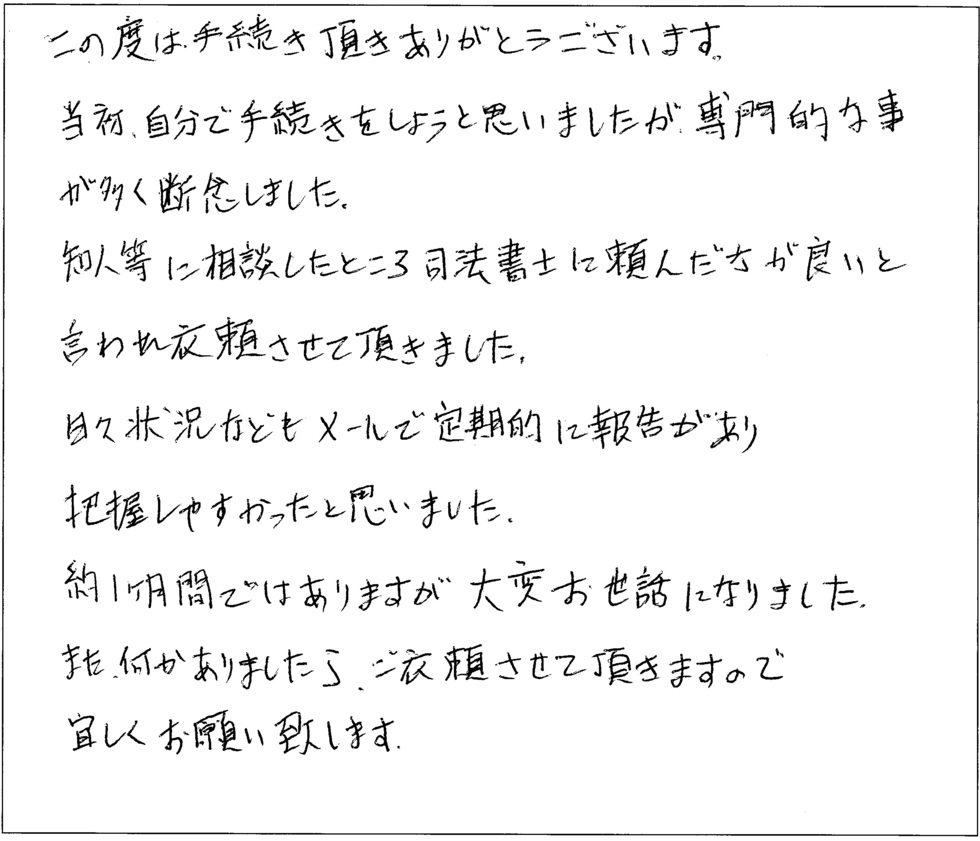 この度は手続き頂きありがとうございます。
当初、自分で手続きをしようと思いましたが、専門的な事
が多く断念しました。
知人等に相談したところ司法書士に頼んだ方が良いと
言われ衣頼させて頂きました。
日々状況などもメールで定期的に報告があり
把握しやすかったと思いました。
約1ヶ月間ではありますが大変お世話になりました。
また、何かありましたら、ご衣頼させて頂きますので
宜しくお願い致します。